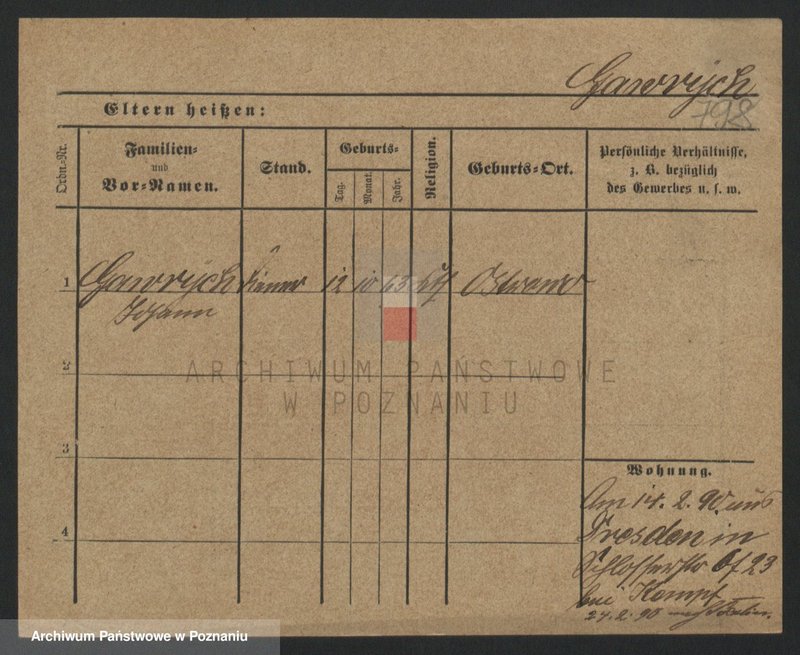 Gawrych
798
Eltern heißen:
Ordn.-Nr.
Familien-
und
Vor-Namen.
Stand.
Geburts-
Tag.
Monat.
Jahr.
Religion.
Geburts-Ort.
Persönliche Verhältnisse,
z. B. bezüglich
des Gewerbes u. s. w.
1 Gawrych Diener 12 10 63 Ostrowo
Johann
2
ARCHIWUM PAŃSTWOWE
W POZNANIU
3
4
Wohnung.
Am 14. 2. 90 aus
Dresden in
Schlosserstr 23
bei Kempf
24. 2. 90 nach
Archiwum Państwowe w Poznaniu